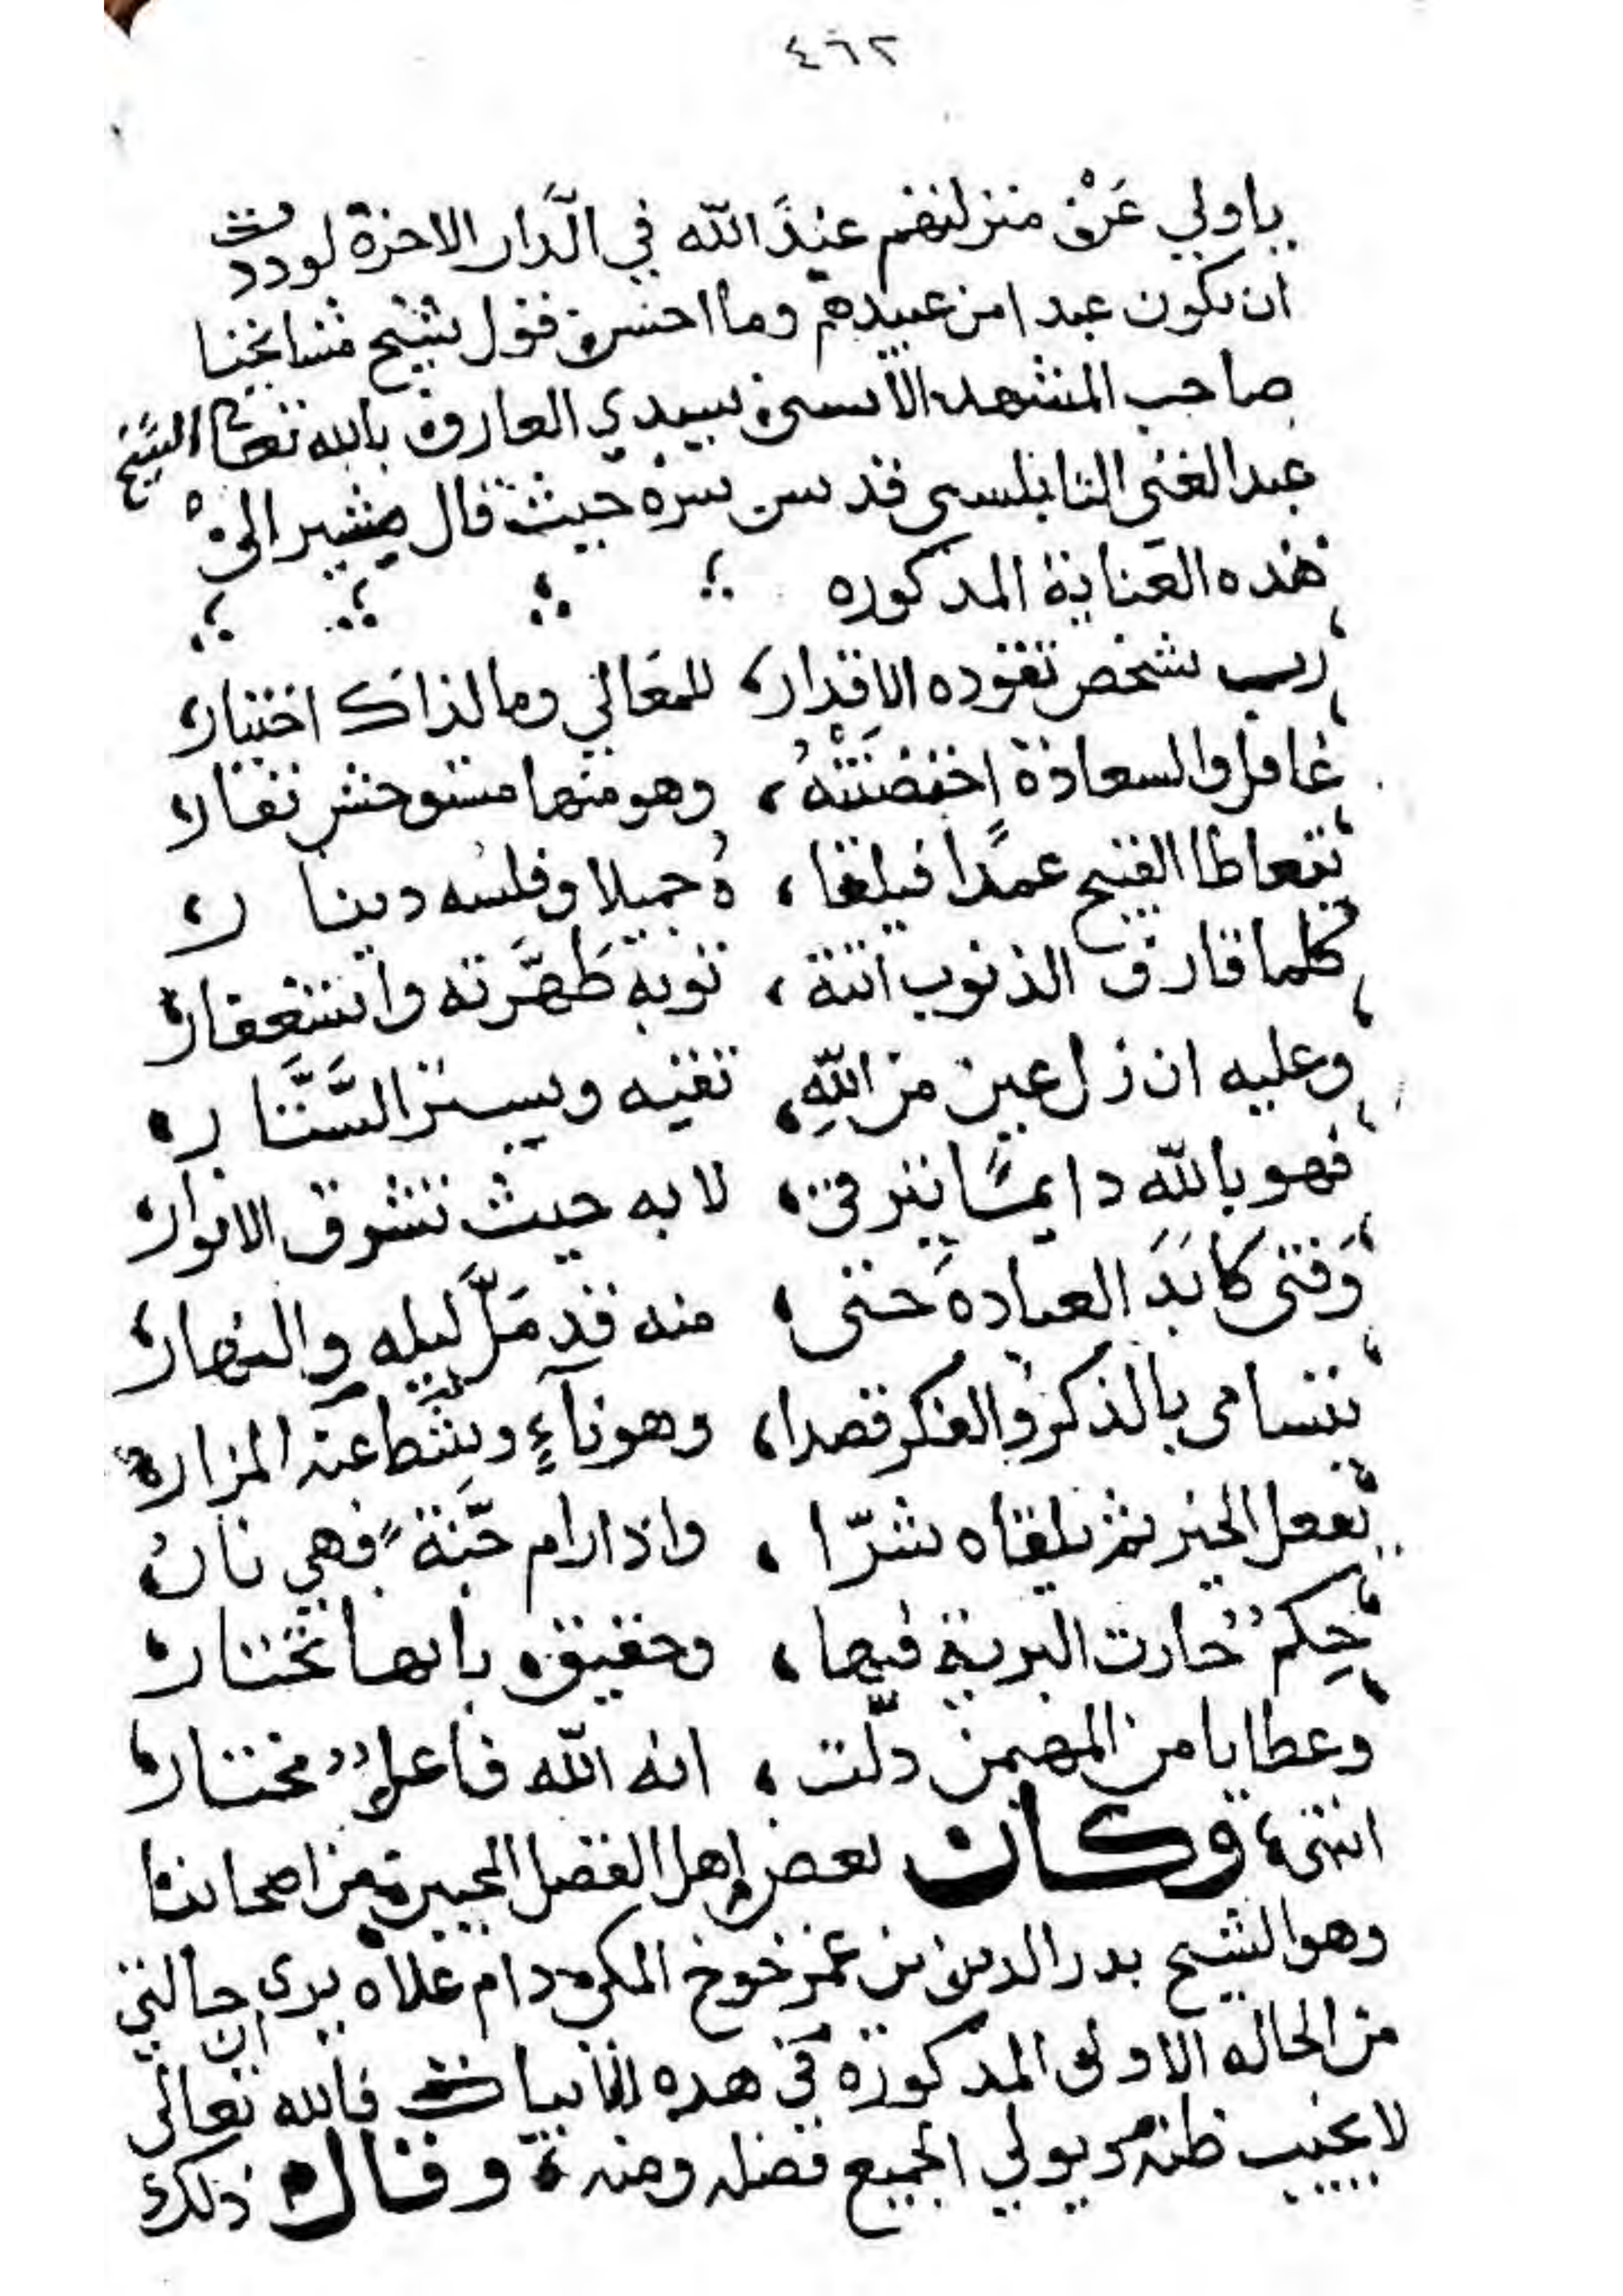 ٤٦٢
ياولي عن منزلتهم عند الله في الدار الاخرة لوددت
ان تكون عبدا من عبيدهم وما احسن قول شيخ مشايخنا
صاحب المشهد الاسنى سيدي العارف بالله تعا الشيخ
عبد الغني النابلسي قدس سره حيث قال مشير الى
هذه العناية المذكوره
رب شخص تقوده الاقدار، للمعالي وما لذاك اختيار
غافل والسعادة احتضنته، وهو منها مستوحش نفار
يتعاطا القبيح عمدا فيلقا، ه جميلا وفلسه دينا ر
كلما قارف الذنوب اتته، توبة طهرته واستغفار
وعليه ان زل عين من الله، تقيه ويستر الستار
فهو بالله دايما يترقى، لا به حيث تشرق الانوار
وفتى كابد العباده حتى، منه قد مل ليله والنهار
يتسامى بالذكر والفكر قصدا، وهو ناء ويشط عنه المزار
يفعل الخير ثم يلقاه شرا، واذا رام جنة فهي نار
حكم حارت البرية فيها، وحقيق بانها تحتار
وعطايا من المهيمن دلت، انه الله فاعل مختار
انتهى، وكان بعض اهل الفضل المحبين من اصحابنا
وهو الشيخ بدر الدين بن عمر خوخ المكي دام علاه يرى حالتي ان
من الحاله الاولى المذكورة في هذه الابيات فالله تعالى
لا يخيب ظنه ويولي الجميع فضله ومنه وقال ذلك